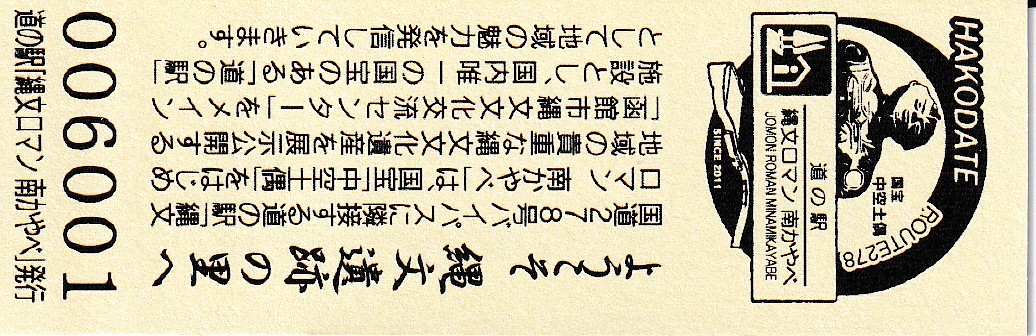 ようこそ 縄文遺跡の里へ
国道278号バイパスに隣接する道の駅「縄文
ロマン 南かやべ」は、国宝「中空土偶」をはじめ
地域の貴重な縄文文化遺産を展示公開する
「函館市縄文文化交流センター」をメイン
施設とし、国内唯一の国宝のある「道の駅」
として地域の魅力を発信していきます。
HAKODATE
国宝
中空土偶
ROUTE278
道の駅
縄文ロマン 南かやべ
JOMON ROMAN MINAMIKAYABE
SINCE 2011
006001
道の駅「縄文ロマン 南かやべ」発行